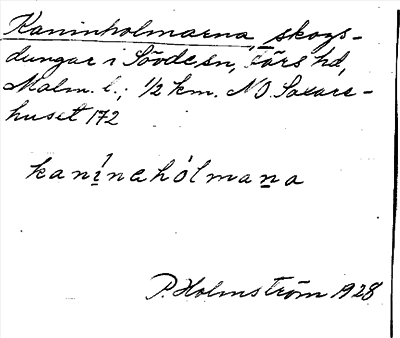 Kaninholmarna, skogs-
dungar i Sövde sn, Färs hd,
Malm. l.; 1/2 km. NO.
huset 172
kanineholmana
P. Holmström 1928